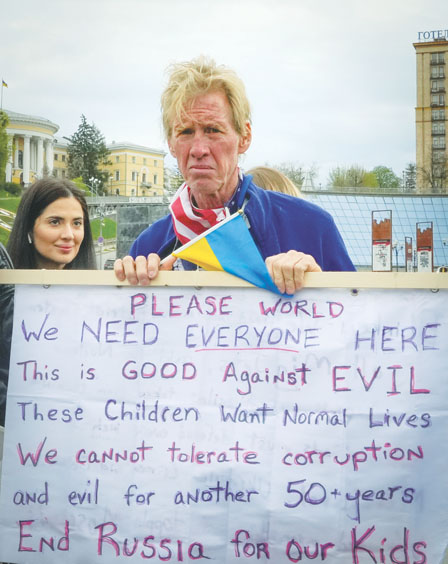 ГОТЕЛ
PLEASE WORLD
We NEED EVERYONE HERE
This is GOOD Against EVIL
These Children Want Normal Lives
We cannot tolerate corruption
and evil for another 50+years
End Russia for our Kids